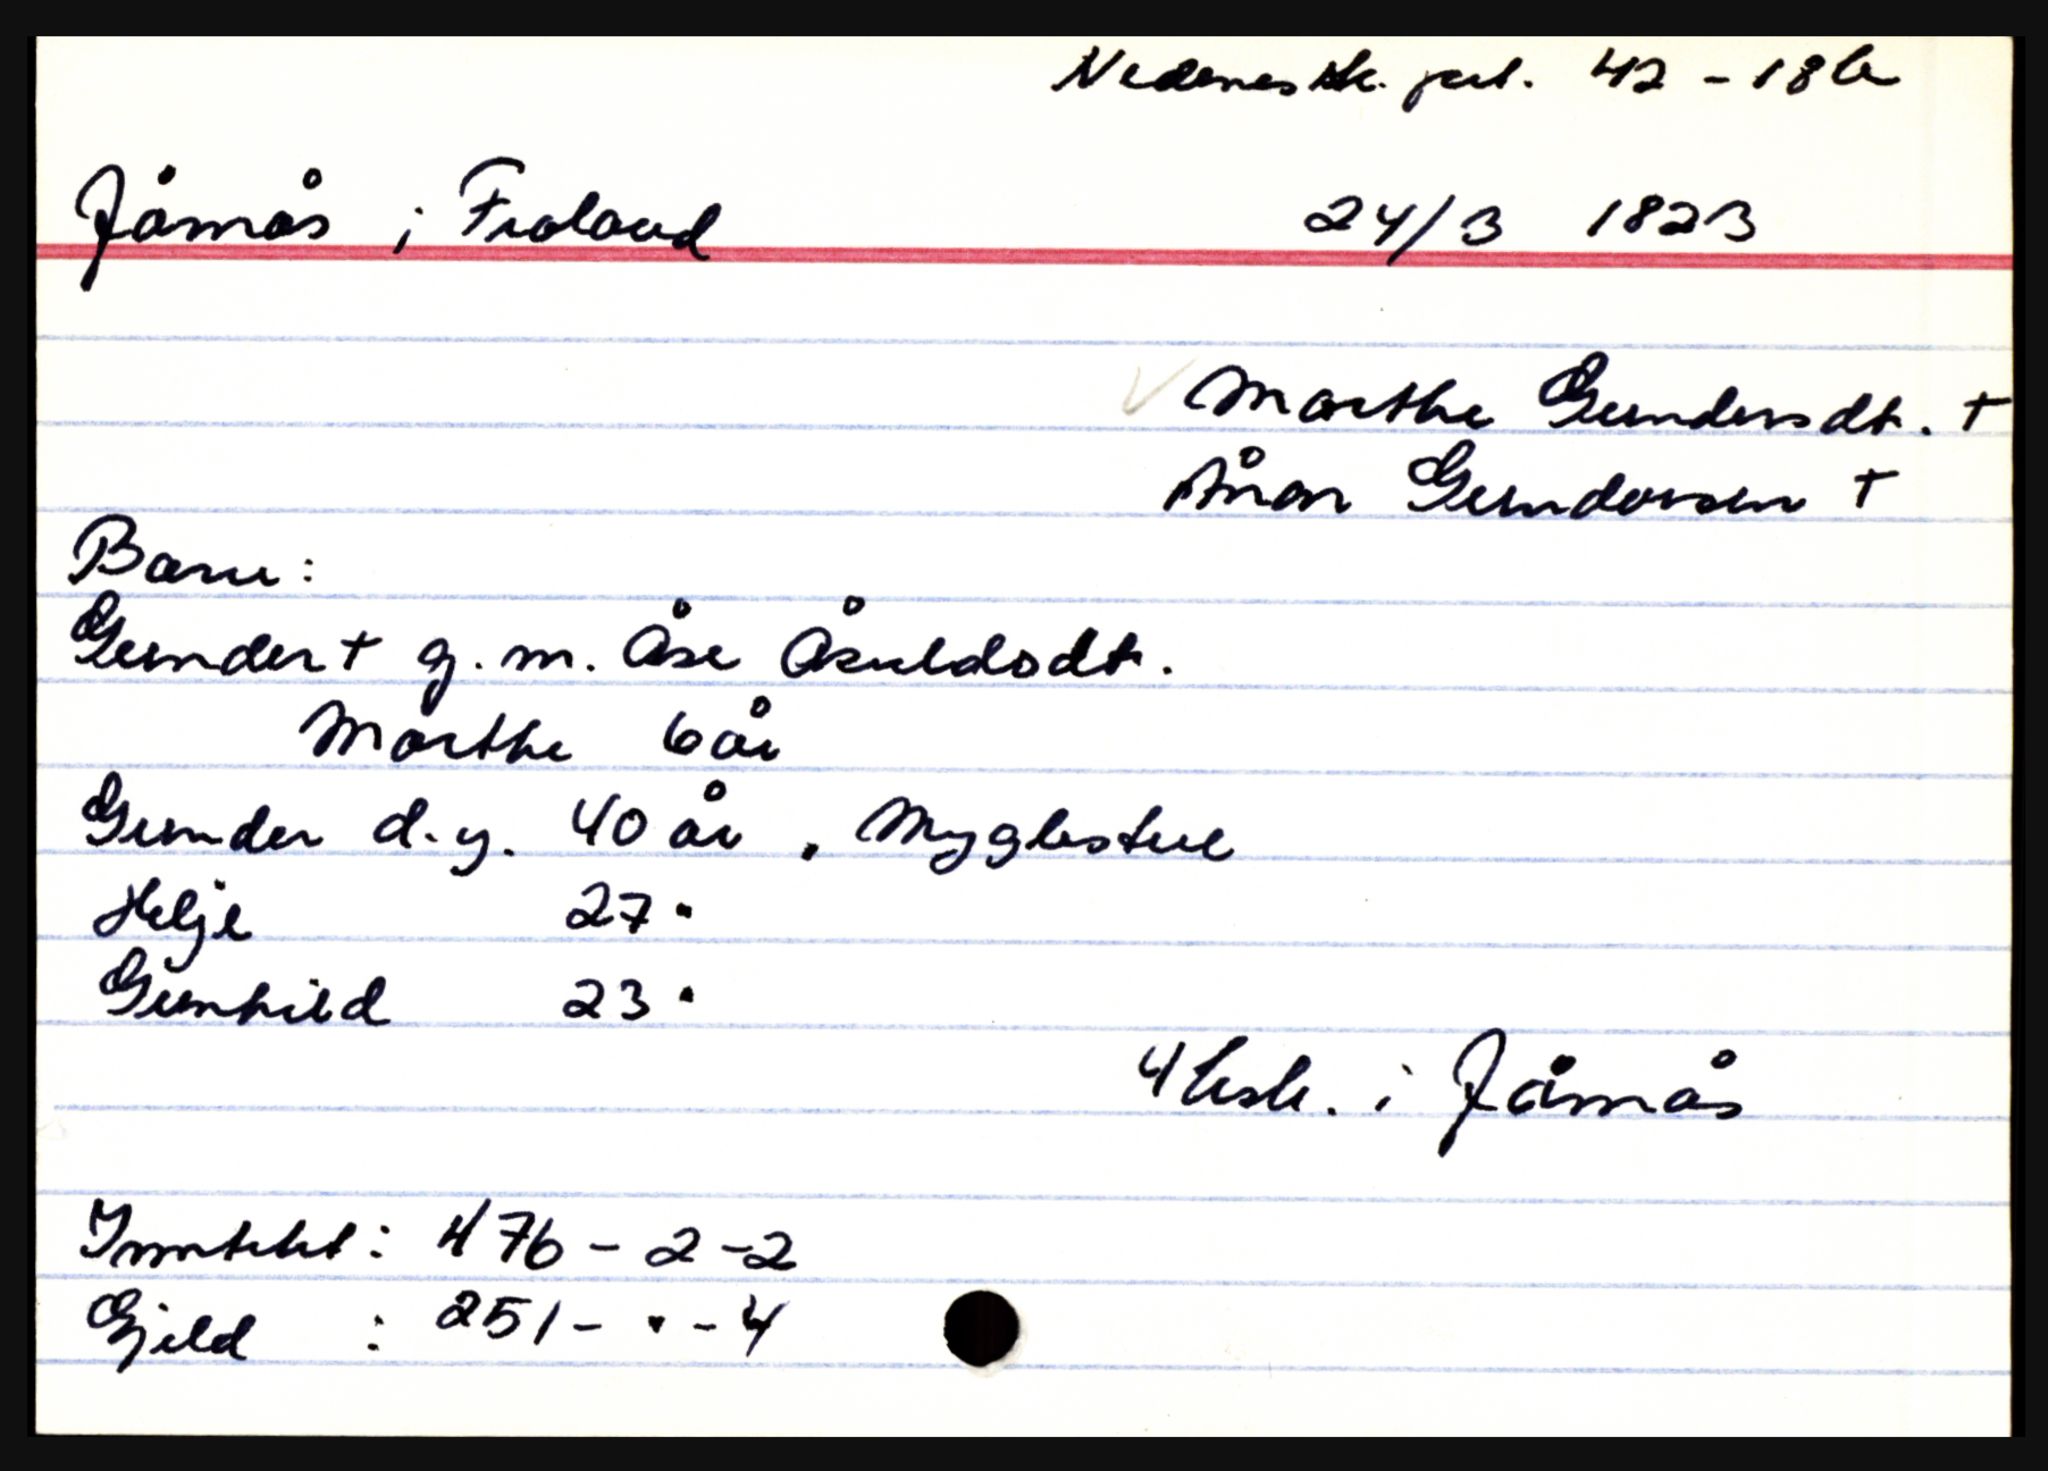 Nedenes sk. prt. 42 - 18b
Jåmås i Froland 24/3 1823
Marthe Gundersdt. +
Ånon Gundersen +
Barn:
Gunder + g. m. Åse Åsuldsdt.
Marthe 6 år
Gunder d.y. 40 år, Myglestul
Helje 27 "
Gunhild 23 "
4 bsk. i Jåmås
Inntekt: 476 - 2 - 2
Gjeld : 251 - " - 4